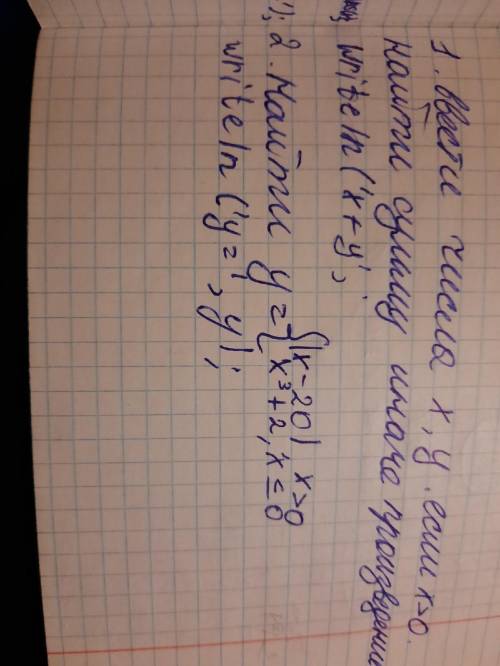 1. Ввести числа x, y. если x>0
Найти сумму иначе произведени
writeln ('x+y',
2. Найти y = { |x-20| x>0
x³+2, x ≤ 0
writeln ('y=', y);